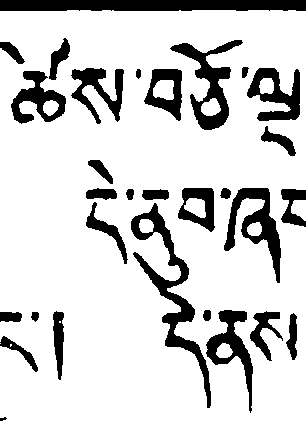 ཚེས་བཅོ་ལྔ
དེ་ནུབ་
ང་། དེ་ནས